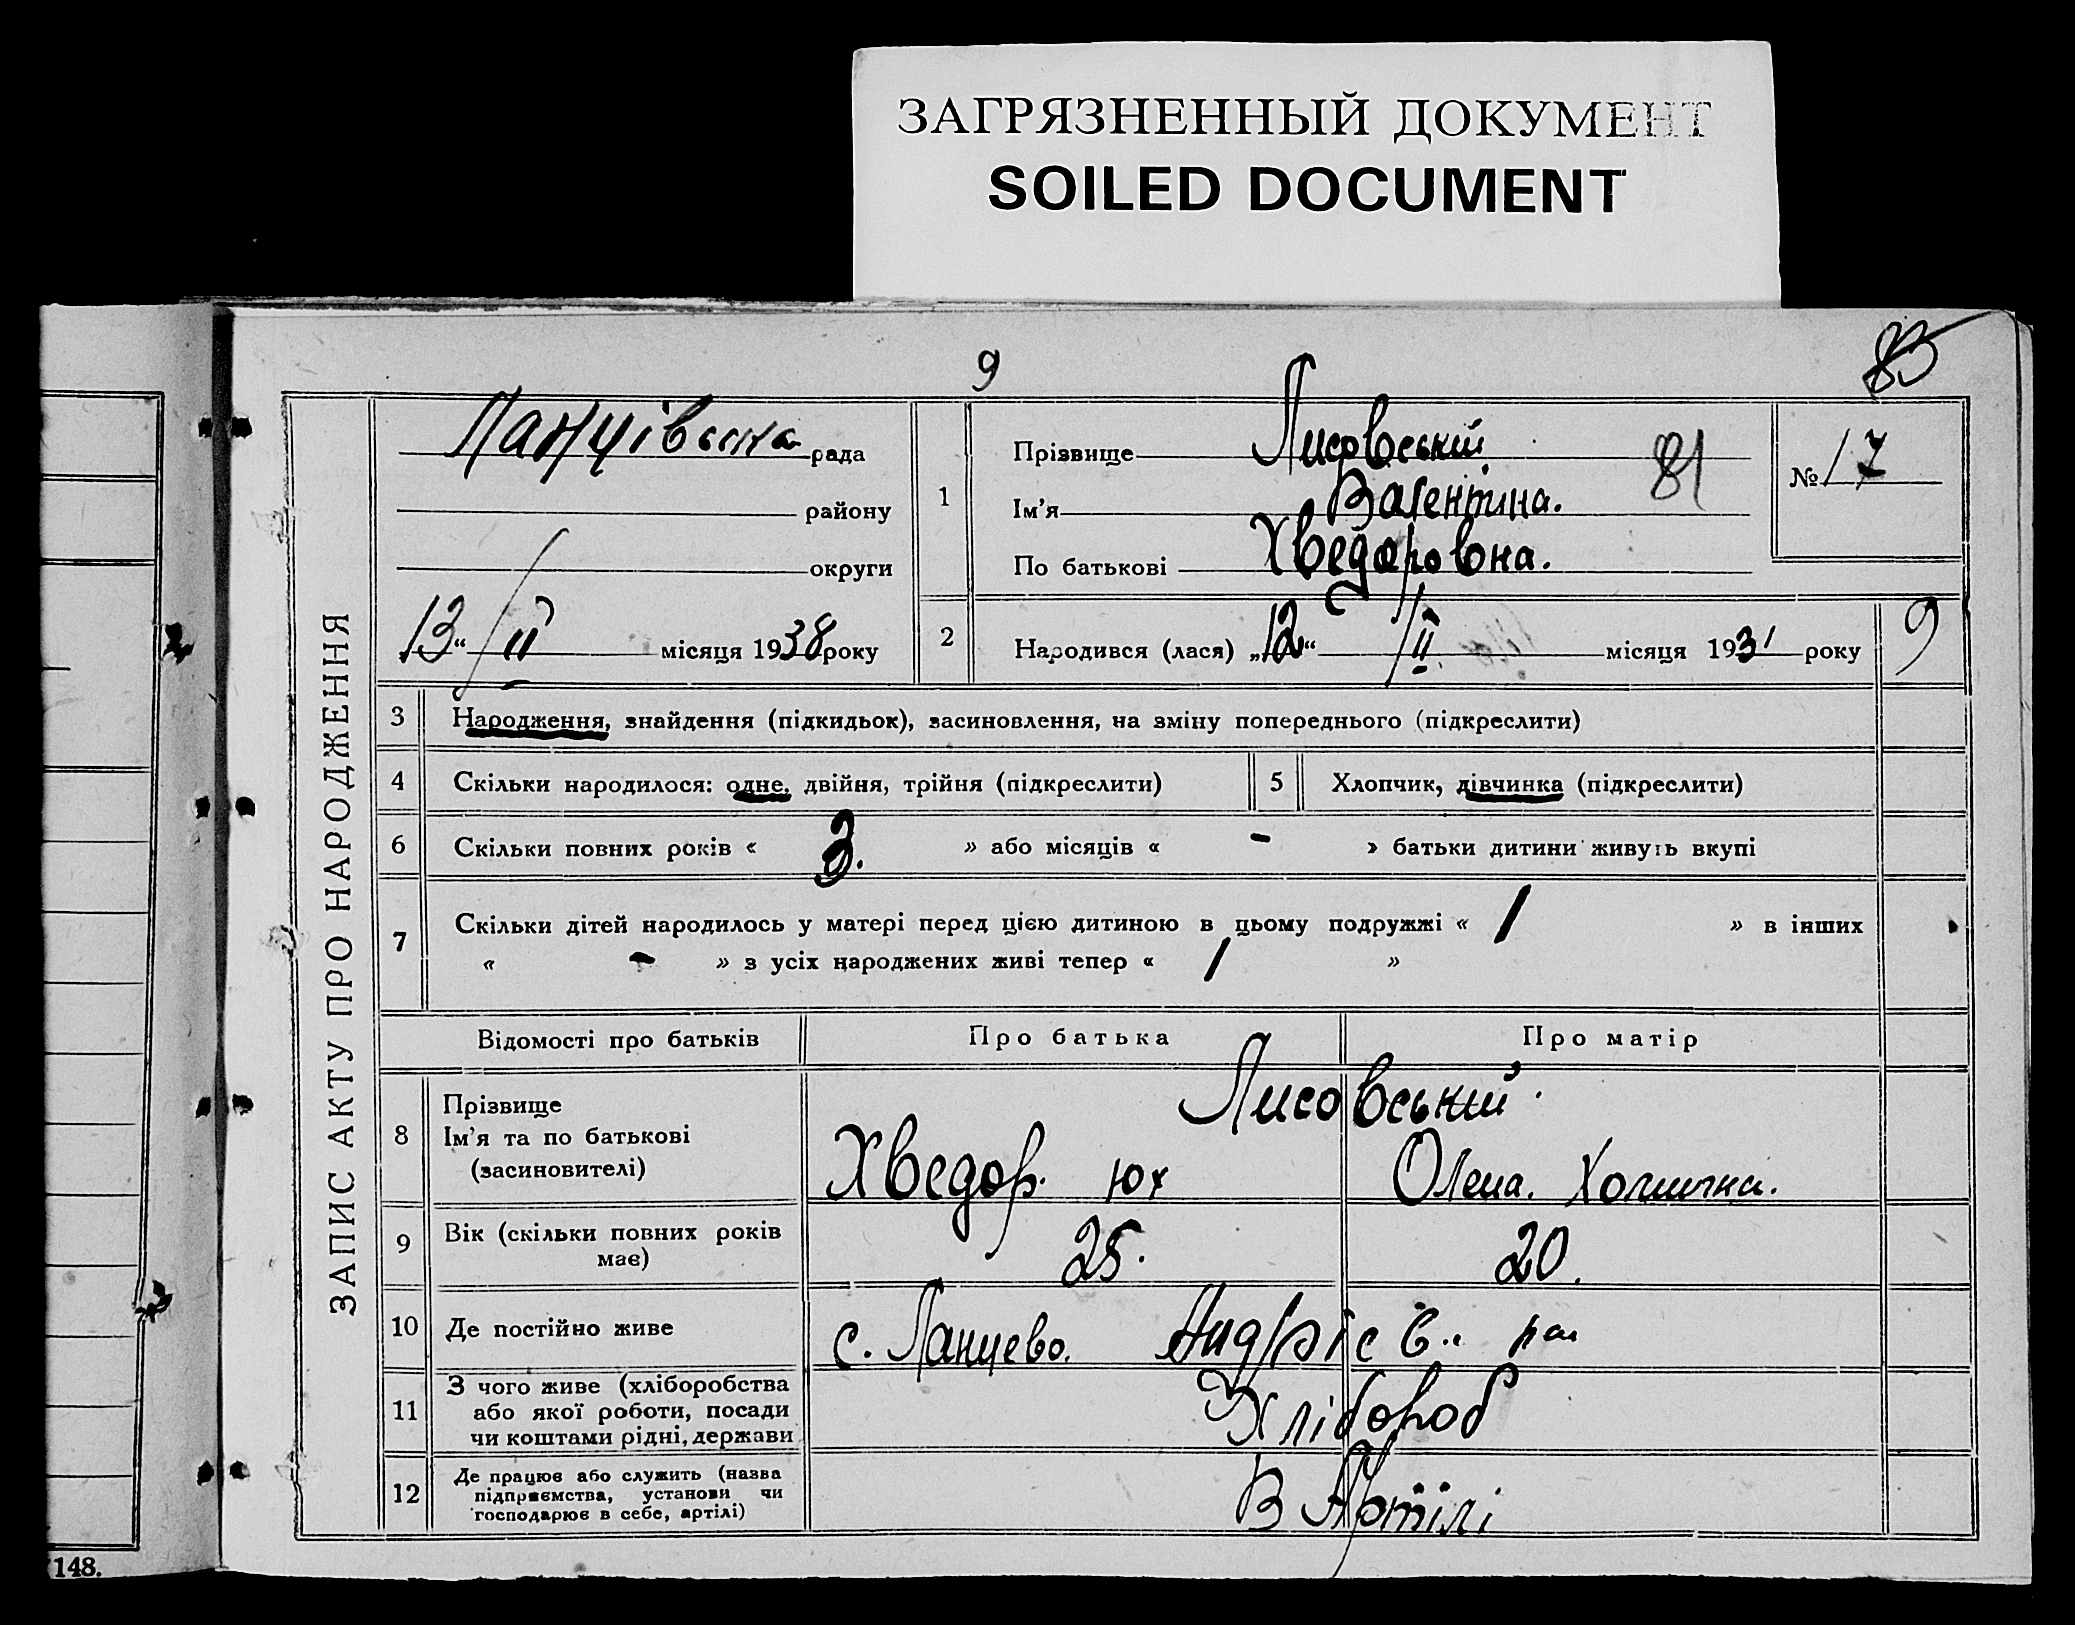 ЗАГРЯЗНЕННЫЙ ДОКУМЕНТ
SOILED DOCUMENT
9
85
ЗАПИС АКТУ ПРО НАРОДЖЕННЯ
Панцівська рада
району
округи
13 “ / ІІ місяця 1938 року
1
Прізвище Лисовський
81
Ім’я Валентина.
По батькові Хведоровна.
№ 17
2 Народився (лася) „12“ / ІІ місяця 1931 року
9
3 Народження, знайдення (підкидьок), засиновлення, на зміну попереднього (підкреслити)
4 Скільки народилося: одне, двійня, трійня (підкреслити) 5 Хлопчик, дівчинка (підкреслити)
6 Скільки повних років « 3. » або місяців « - » батьки дитини живуть вкупі
7 Скільки дітей народилось у матері перед цією дитиною в цьому подружжі « 1 » в інших
« - » з усіх народжених живі тепер « 1 »
Відомості про батьків Про батька Про матір
8 Прізвище
Ім’я та по батькові
(засиновителі)
Лисовський
Хведор. Юх Олена.
9 Вік (скільки повних років
має)
25. 20.
10 Де постійно живе с. Панцево. рай
11 З чого живе (хліборобства
або якої роботи, посади
чи коштами рідні, держави
Хлібороб
12 Де працює або служить (назва
підприємства, установи чи
господарює в себе, артілі)
В Артілі
148.